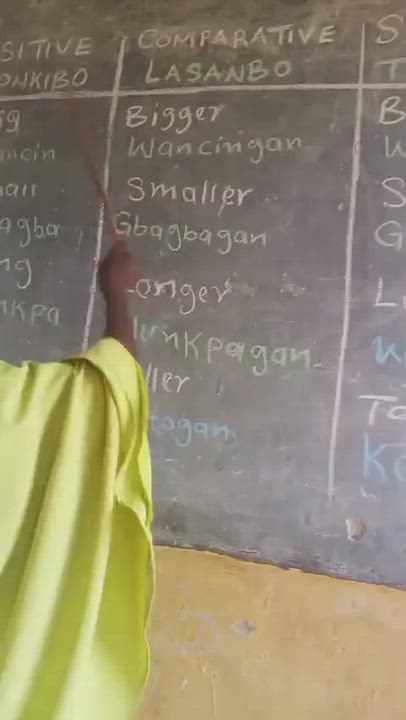 SITIVE COMPARATIVE S
ONKIBO LASANBO T
ig Bigger B
ncin Wancingan W
mall Smaller S
agba Gbagbagan G
ng onger L
nkpa unkpagan
ller Ta
togan Ko